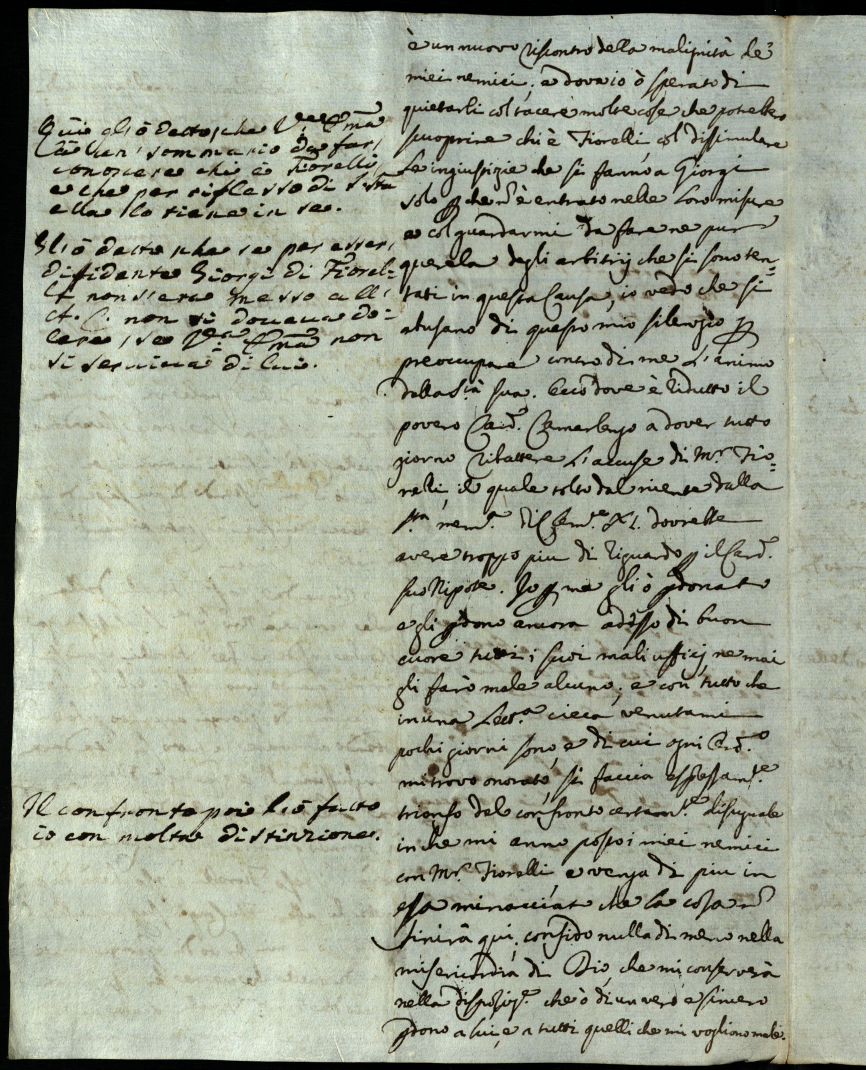 Qui gli ò detto, che V.ra Em.za
à un sommario da far
conoscere chi è Fiorelli,
e che per riflesso di S. Stà
ella lo tiene in se.
Gli ò detto, che se per esser
difidente Giorgi di Fiorel-
li non s'era messo all'
A. C. non si doueua do-
lere, se V.ra Em.za non
si seruiua di lui.
Il confronto poi l'ò fatto
io con molta distinzione.
è un nuovo riscontro della malignità de'
miei nemici; e dove io ò sperato di
quietarli col tacere molte cose che potrebbero
scuoprire chi è Fiorelli, col dissimulare
le ingiustizie che si fanno a Giorgi
solo p che nõ è entrato nelle loro misure
e col guardarmi da fare ne pur
querela degli arbitrij che si sono ten=
tati in questa Causa, io vedo che si
abusano di questo mio silenzio p
preoccupare contro di me l'animo
della S.tà sua. Ecco dove è ridutto il
povero Card. Camarlengo a dover tutto
giorno ributtere l'accuse di M.r Fio=
relli, il quale tolto dal niente dalla
s.ta mem.a di Clem.te XI. dovrebbe
avere troppo piu di riguardo p il Card.
suo Nipote. Io p me gli ò pdonato
e gli pdono ancora adesso di buon
cuore tutti i suoi mali ufficij, ne mai
gli farò male alcuno; e con tutto che
in una Lett.a cieca venutami
pochi giorni sono, e di cui ogni Ord.o
mi trovo onorato, si faccia espressam.te
trionfo del confronto certam.te disiguale
in che mi anno posto i miei nemici
con M.r Fiorelli e venga di piu in
essa minacciato che la cosa nõ
finirà qui, confido nulla di meno nella
misericordia di Dio, che mi conserverà
nella dispoziz.e che ò di un vero e sincero
pdono a lui, e a tutti quelli che mi vogliono male.